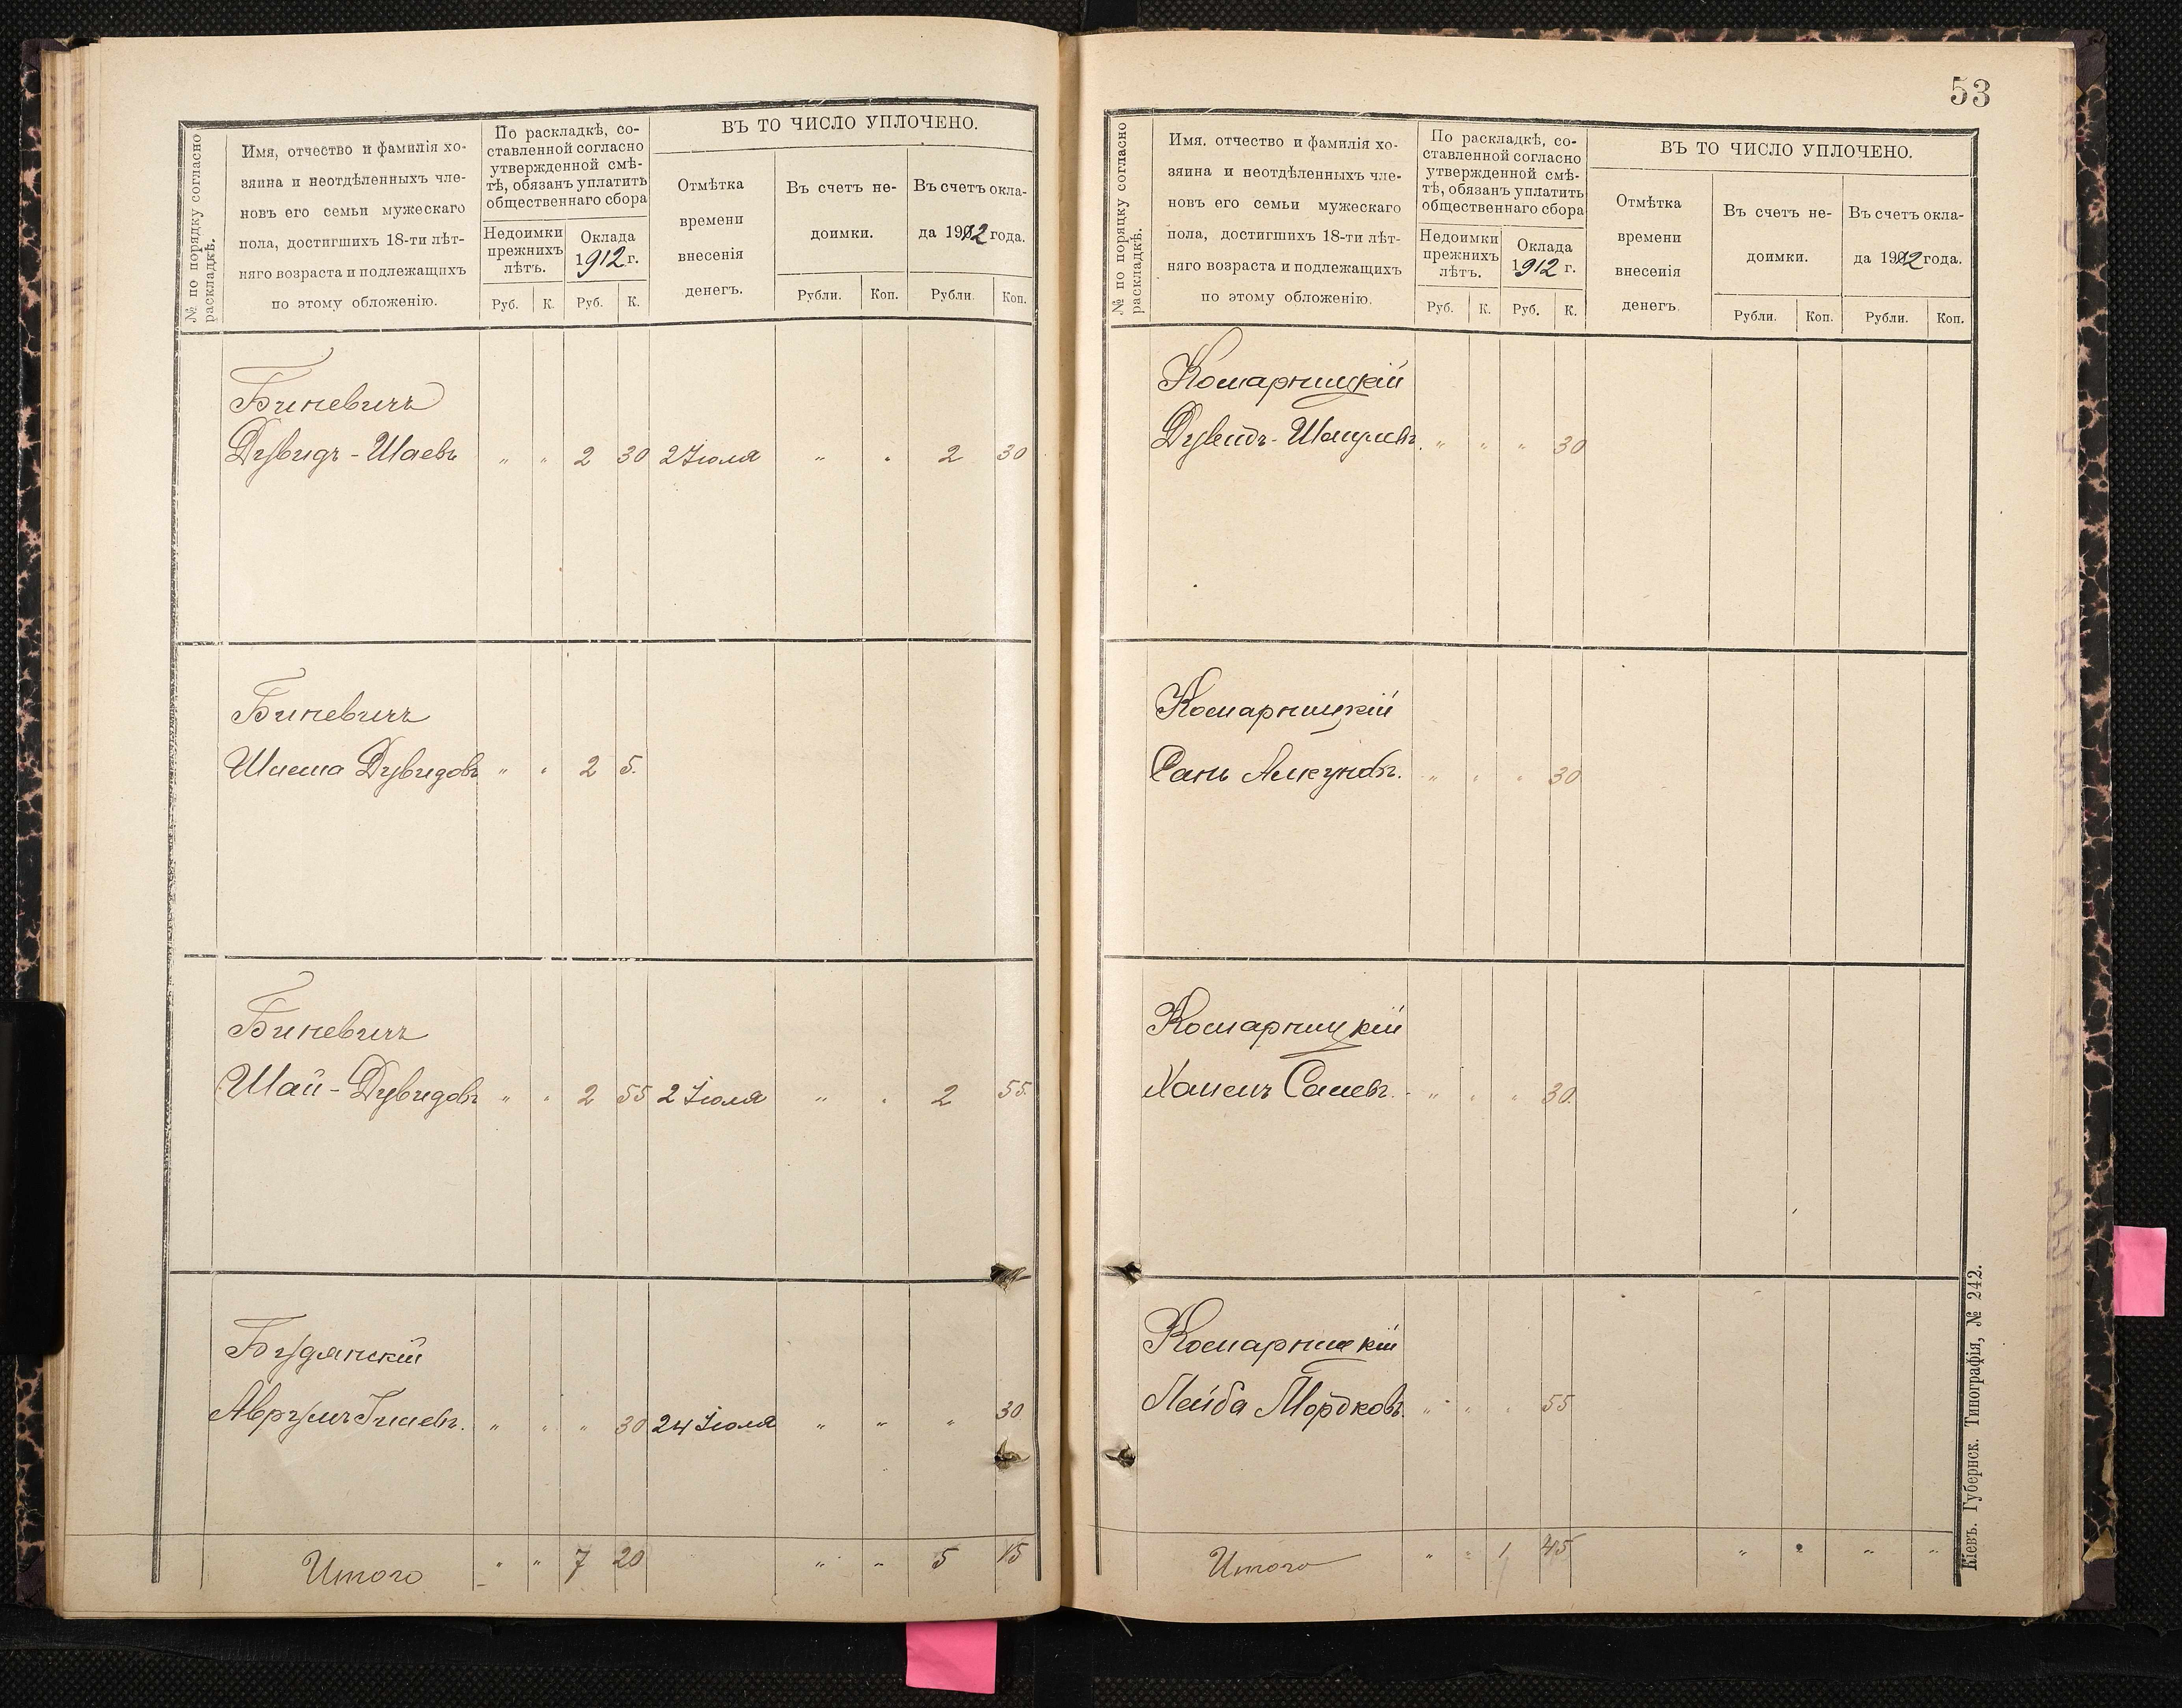 № по порядку согласно
раскладкѣ.
Имя, отчество и фамилія хо-
зяина и неотдѣленныхъ чле-
новъ его семьи мужескаго
пола, достигшихъ 18-ти лѣт-
няго возраста и подлежащихъ
по этому обложенію.
По раскладкѣ, со-
ставленной согласно
утвержденной смѣ-
тѣ, обязанъ уплатить
общественнаго сбора
Недоимки
прежнихъ
лѣтъ.
Оклада
1912 г.
Руб. К. Руб. К.
ВЪ ТО ЧИСЛО УПЛОЧЕНО.
Отмѣтка
времени
внесенія
денегъ.
Въ счетъ не-
доимки.
Въ счетъ окла-
да 1912 года.
Рубли. Коп. Рубли. Коп.
Биневичъ
Дувидъ-Шаевъ " " 2 30 2 Іюля " " 2 30
Биневичъ
Дувидовъ " " 2 5.
Биневичъ
Шай-Дувидовъ " " 2 55 2 Іюля " " 2 55.
Будянскій
Аврумъ " " " 30 24 Іюля " " " 30
Итого " " 7 20 " " 5 15
53
№ по порядку согласно
раскладкѣ.
Имя, отчество и фамилія хо-
зяина и неотдѣленныхъ чле-
новъ его семьи мужескаго
пола, достигшихъ 18-ти лѣт-
няго возраста и подлежащихъ
по этому обложенію.
По раскладкѣ, со-
ставленной согласно
утвержденной смѣ-
тѣ, обязанъ уплатить
общественнаго сбора
Недоимки
прежнихъ
лѣтъ.
Оклада
1912 г.
Руб. К. Руб. К.
ВЪ ТО ЧИСЛО УПЛОЧЕНО.
Отмѣтка
времени
внесенія
денегъ.
Въ счетъ не-
доимки.
Въ счетъ окла-
да 1912 года.
Рубли. Коп. Рубли. Коп.
Комарницкій
Дувидъ- " " " 30
Комарницкій
" " " 30
Комарницкій
" " " 30.
Комарницкій
Лейба Мордковъ. " " " 55
Итого " " 1 45 " " " "
Кіевъ. Губернск. Типографія, № 242.